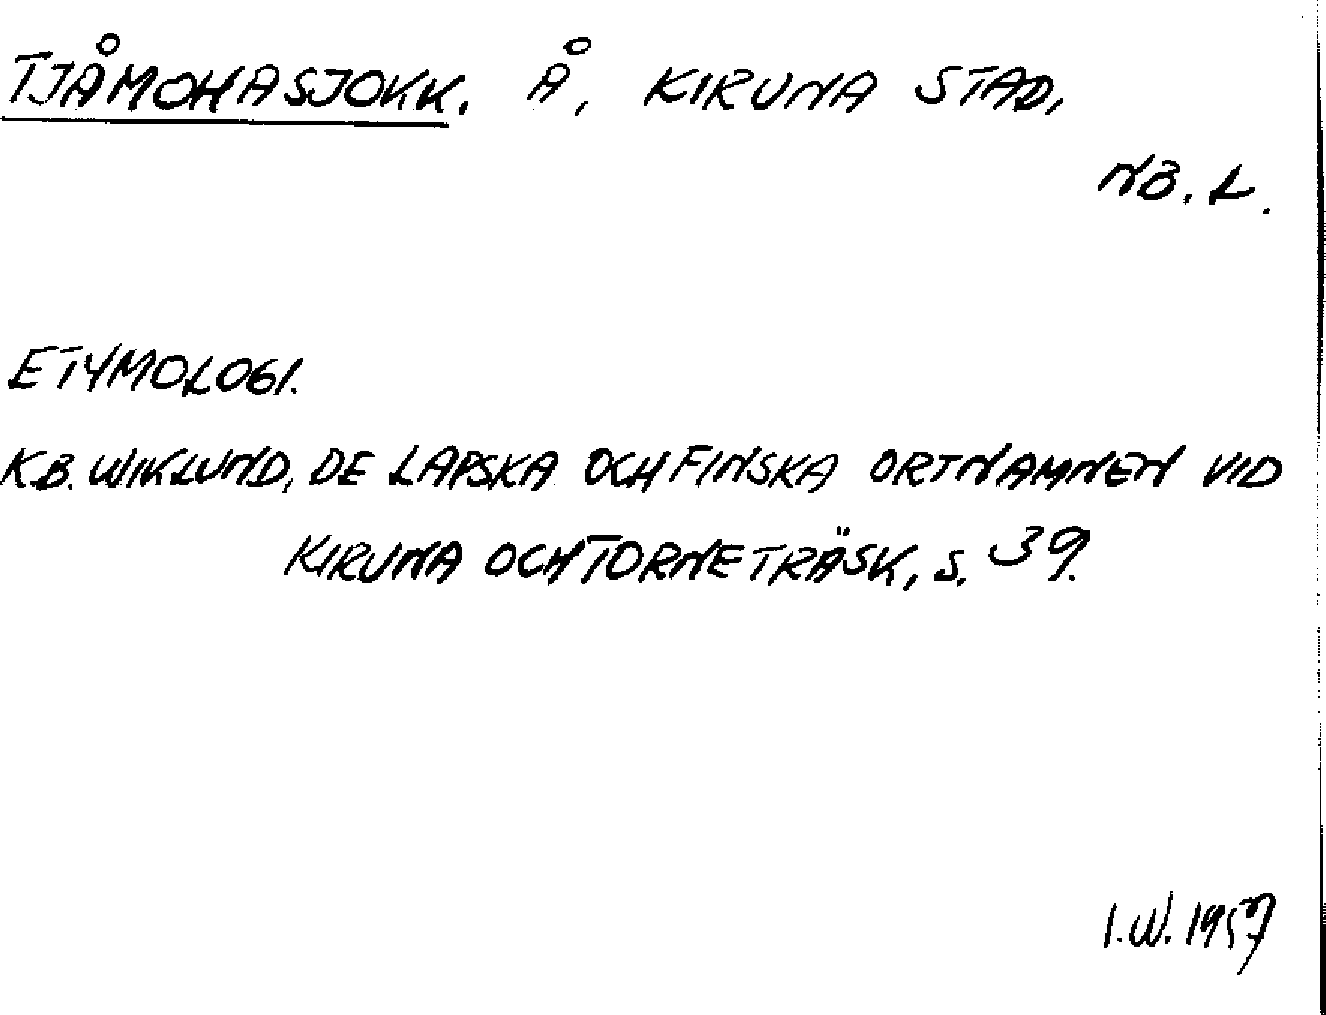 TJÅMOHASJOKK. Å, KIRUNA STAD,
NB. L.
ETYMOLOGI.
K.B. WIKLUND, DE LAPSKA OCH FINSKA ORTNAMNEN VID
KIRUNA OCH TORNETRÄSK, S. 39.
I.W. 1957